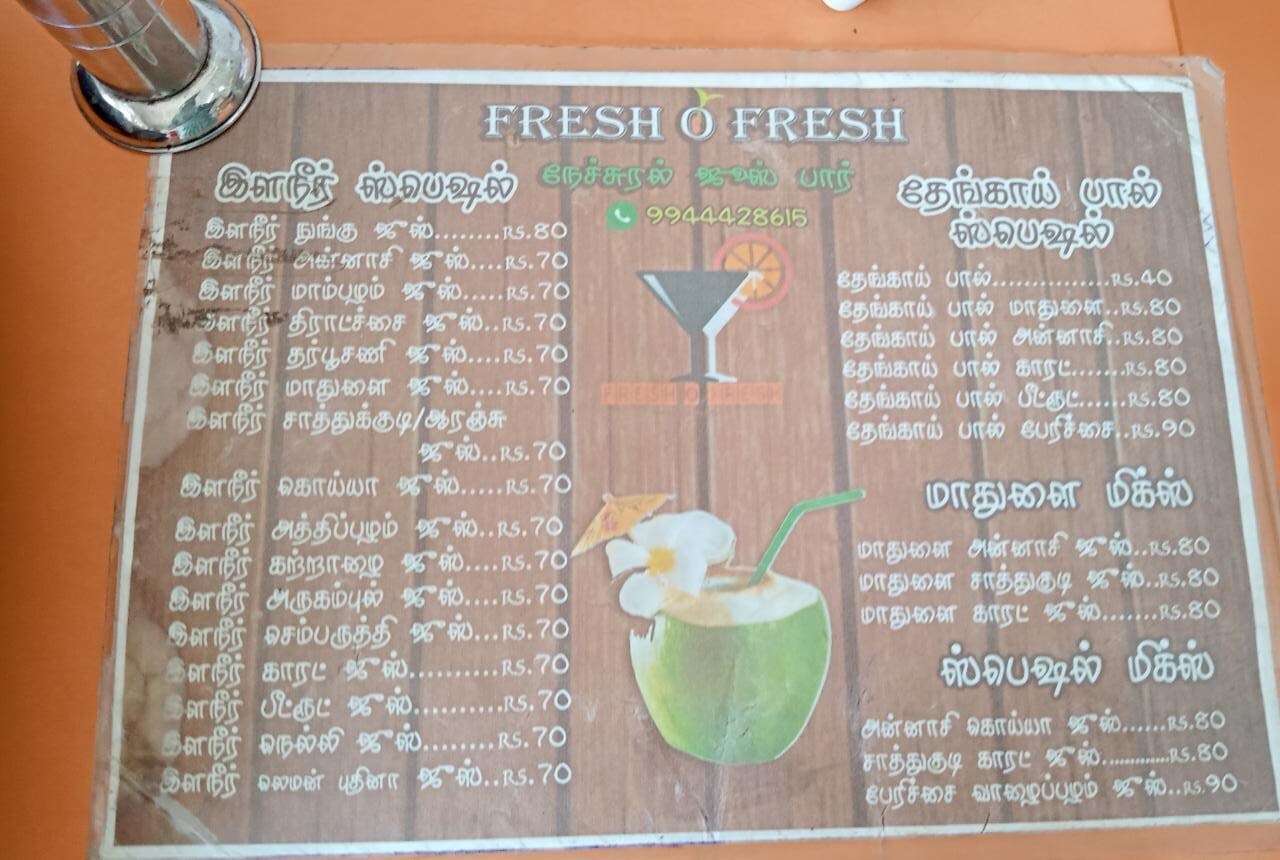 FRESH O FRESH
நேச்சுரல் ஜூஸ் பார்
9944428615
FRESH O FRESH
இளநீர் ஸ்பெஷல்
இளநீர் நுங்கு ஜூஸ்........RS.80
இளநீர் அன்னாசி ஜூஸ்....RS.70
இளநீர் மாம்பழம் ஜூஸ்.....RS.70
இளநீர் திராட்ச்சை ஜூஸ்..RS.70
இளநீர் தர்பூசணி ஜூஸ்....RS.70
இளநீர் மாதுளை ஜூஸ்....RS.70
இளநீர் சாத்துக்குடி/ஆரஞ்சு
ஜூஸ்..RS.70
இளநீர் கொய்யா ஜூஸ்.....RS.70
இளநீர் அத்திப்பழம் ஜூஸ்..RS.70
இளநீர் கற்றாழை ஜூஸ்....RS.70
இளநீர் அருகம்புல் ஜூஸ்...RS.70
இளநீர் செம்பருத்தி ஜூஸ்...RS.70
இளநீர் காரட் ஜூஸ்..........RS.70
இளநீர் பீட்ரூட் ஜூஸ்.........RS.70
இளநீர் நெல்லி ஜூஸ்........RS.70
இளநீர் லெமன் புதினா ஜூஸ்..RS.70
தேங்காய் பால்
ஸ்பெஷல்
தேங்காய் பால்...............RS.40
தேங்காய் பால் மாதுளை..RS.80
தேங்காய் பால் அன்னாசி..RS.80
தேங்காய் பால் காரட்.......RS.80
தேங்காய் பால் பீட்ரூட்......RS.80
தேங்காய் பால் பேரிச்சை..RS.90
மாதுளை மிக்ஸ்
மாதுளை அன்னாசி ஜூஸ்..RS.80
மாதுளை சாத்துகுடி ஜூஸ்..RS.80
மாதுளை காரட் ஜூஸ்......RS.80
ஸ்பெஷல் மிக்ஸ்
அன்னாசி கொய்யா ஜூஸ்......RS.80
சாத்துகுடி காரட் ஜூஸ்.............RS.80
பேரிச்சை வாழைப்பழம் ஜூஸ்..RS.90